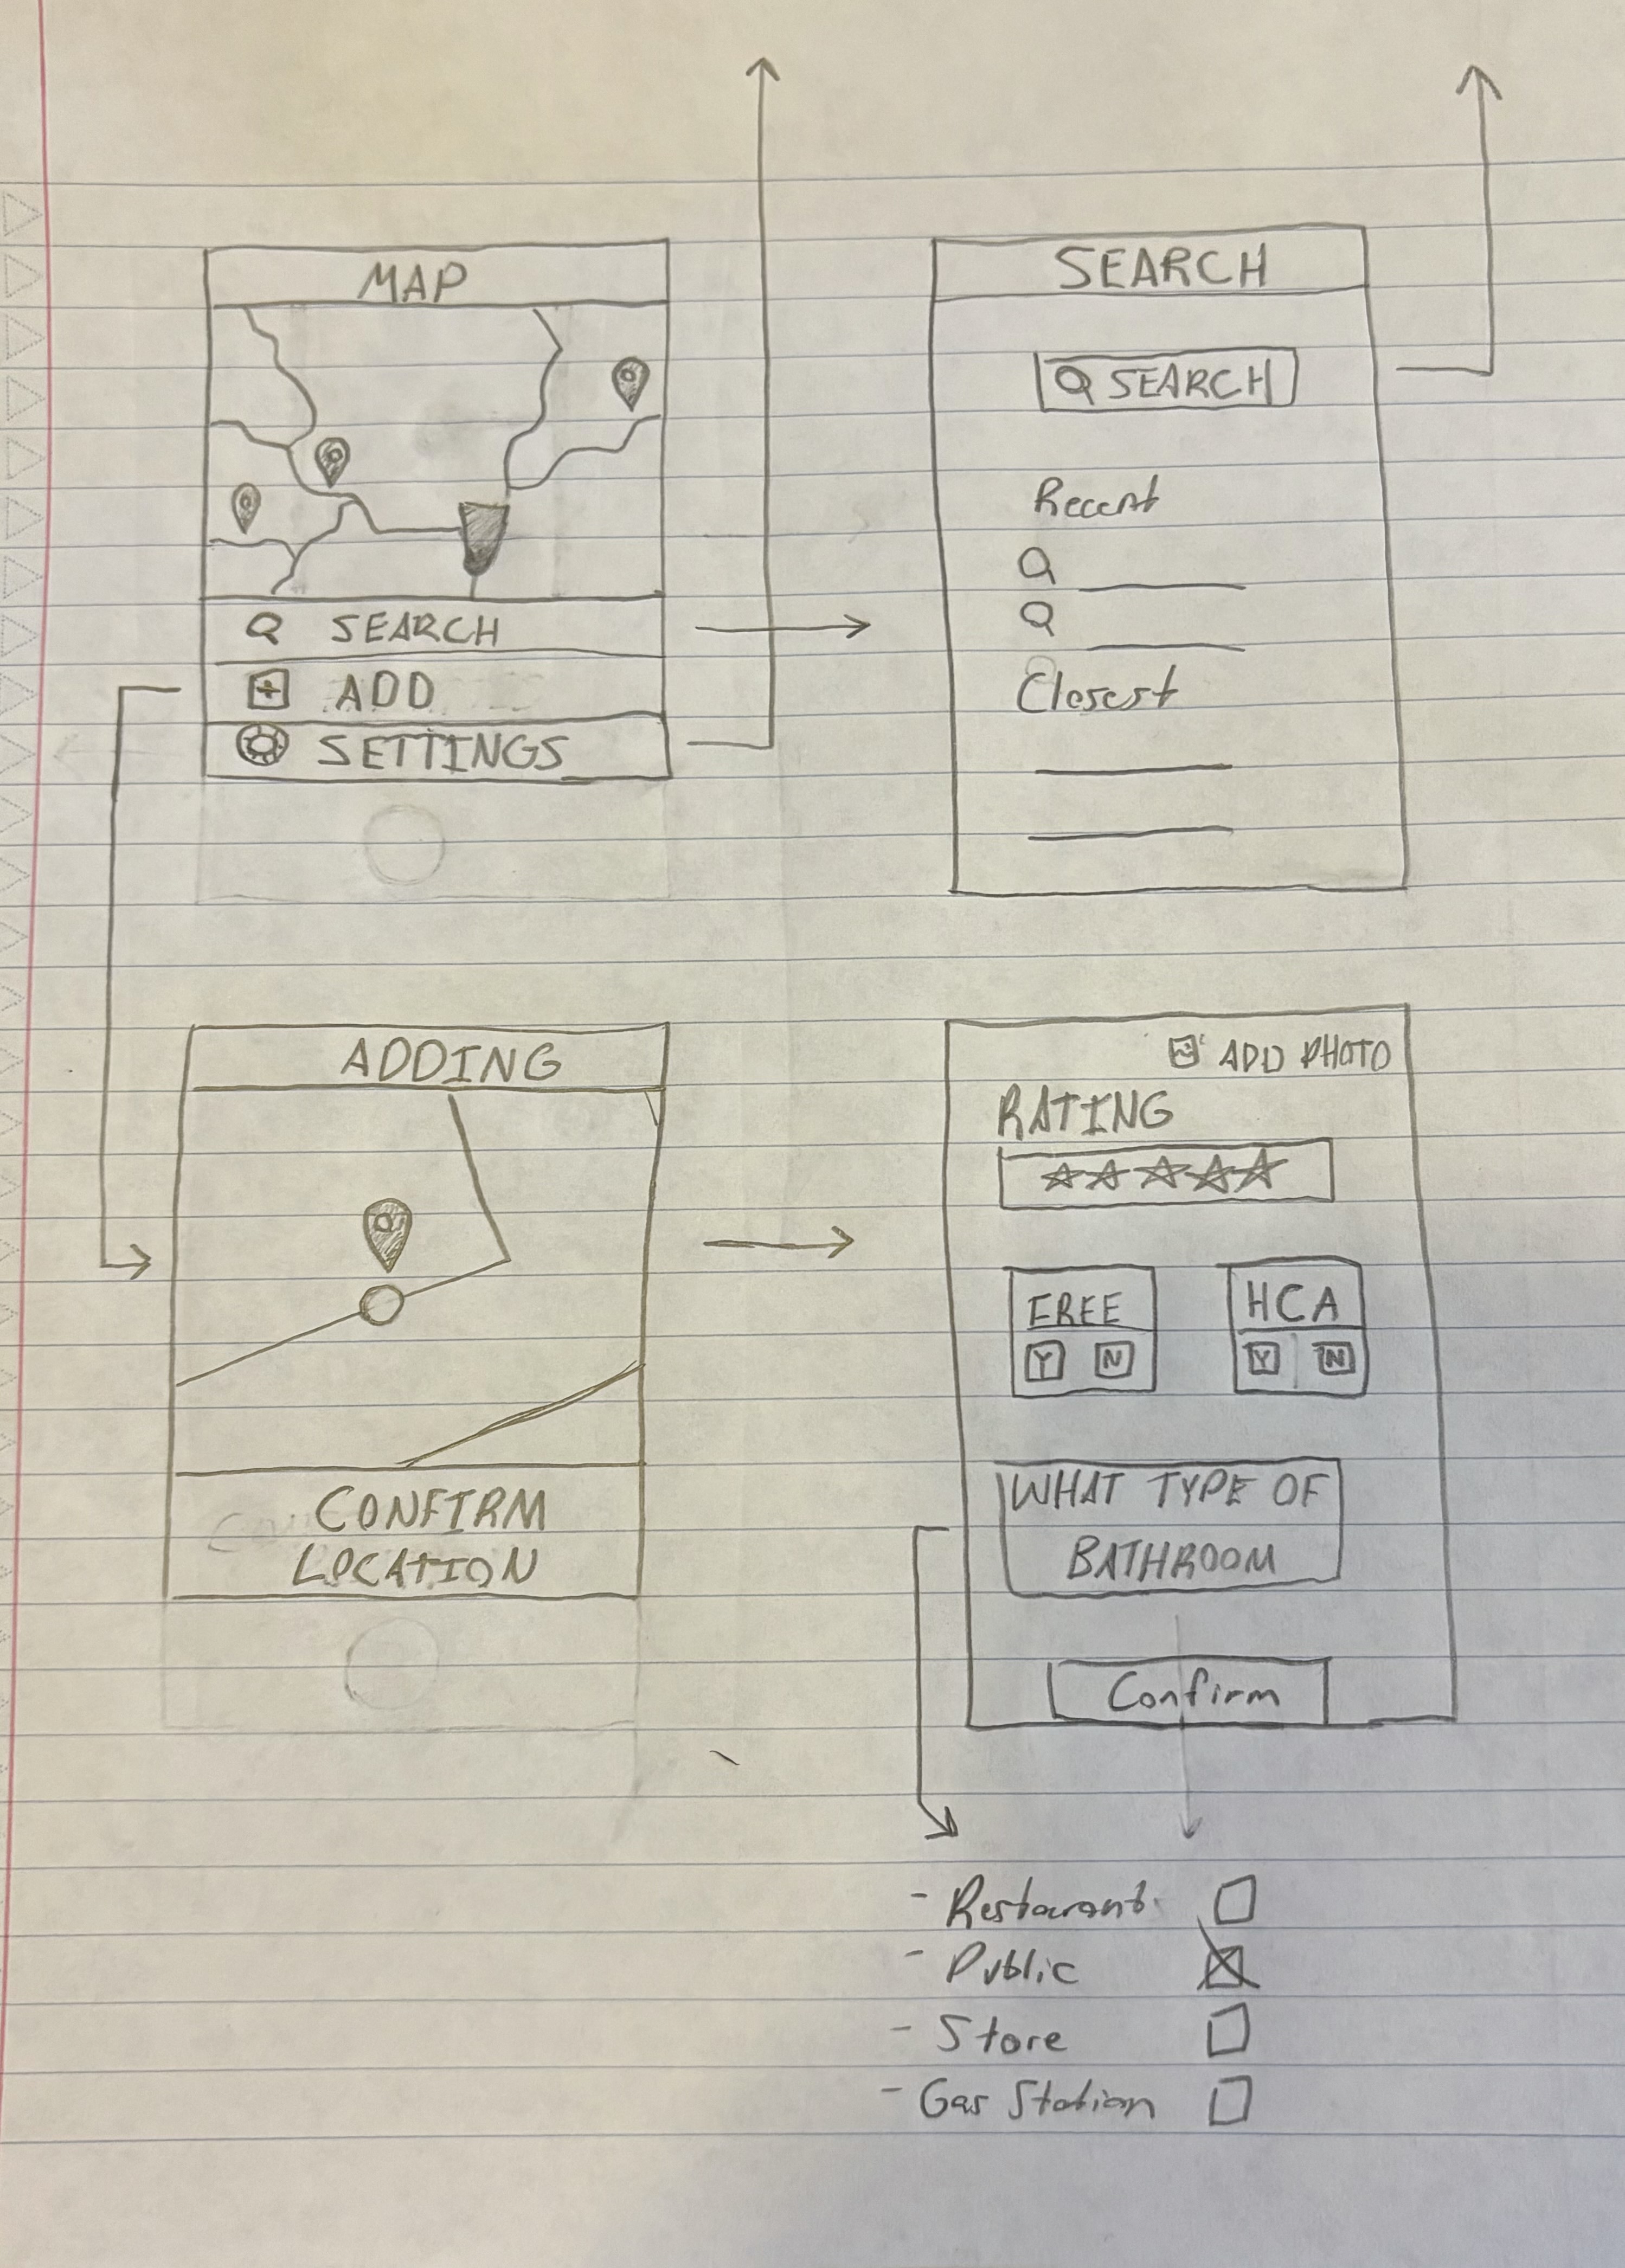 MAP
SEARCH
ADD
SETTINGS
SEARCH
SEARCH
Recent
Closest
ADDING
CONFIRM
LOCATION
ADD PHOTO
RATING
FREE
Y N
HCA
Y N
WHAT TYPE OF
BATHROOM
Confirm
- Restaurant
- Public
- Store
- Gas Station